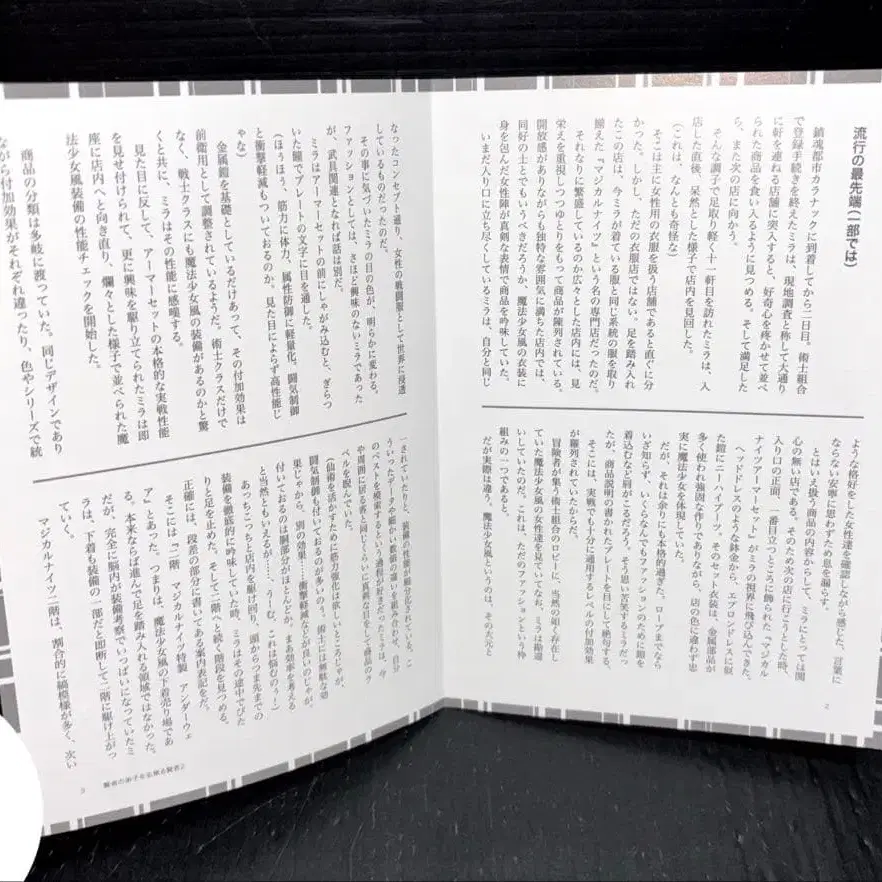 流行の最先端(一部では)
鎮魂都市カラナックに到着してから二日目。術士組合
で登録手続きを終えたミラは、現地調査と称して大通り
に軒を連ねる店舗に突入すると、好奇心を疼かせて並べ
られた商品を食い入るように見つめる。そして満足した
ら、また次の店に向かう。
そんな調子で足取り軽く十一軒目を訪れたミラは、入
店した直後、呆然とした様子で店内を見回した。
(これは、なんとも奇怪な)
そこは主に女性用の衣服を扱う店舗であると直ぐに分
かった。しかし、ただの衣服店ではない。足を踏み入れ
たこの店は、今ミラが着ている服と同じ系統の服を取り
揃えた『マジカルナイツ』という名の専門店だったのだ。
それなりに繁盛しているのか広々とした店内には、見
栄えを重視しつつゆとりをもって商品が陳列されている。
開放感がありながらも独特な雰囲気に満ちた店内では、
同好の士とでもいうべきだろうか、魔法少女風の衣装に
身を包んだ女性陣が真剣な表情で商品を吟味していた。
いまだ入り口に立ち尽くしているミラは、自分と同じ
ような格好をした女性達を確認しながら感じた、言葉に
ならない安寧に思わずため息を漏らす。
とはいえ扱う商品の内容からして、ミラにとっては関
心の無い店である。そのため次の店に行こうとした時、
入り口の正面、一番目立つところに飾られた『マジカル
ナイツアーマーセット』がミラの視界に飛び込んできた。
ヘッドドレスのような鉢金から、エプロンドレスに似
た鎧にニーハイブーツ。そのセット衣装は、金属部品が
多く使われ強固な作りでありながら、店の色に違わず忠
実に魔法少女を体現していた。
だが、それは余りにも本格的過ぎた。ローブまでなら
いざ知らず、いくらなんでもファッションのために鎧を
着込むなど肩がこるだろう。そう思い苦笑するミラだっ
たが、商品説明の書かれたプレートを目にして絶句する。
そこには、実戦でも十分に通用するレベルの付加効果
が羅列されていたからだ。
冒険者が集う術士組合のロビーに、当然の如く存在し
ていた魔法少女風の女性達を見ていてなお、ミラは勘違
いしていたのだ。これは、ただのファッションという枠
組みの一つであると。
だが実際は違う。魔法少女風というのは、その大元と
2
なったコンセプト通り、女性の戦闘服として世界に浸透
しているものだったのだ。
その事に気づいたミラの目の色が、明らかに変わる。
ファッションとしては、さほど興味のないミラであった
が、武具関連となれば話は別だ。
ミラはアーマーセットの前にしゃがみ込むと、ぎらつ
いた瞳でプレートの文字に目を通した。
(ほうほう、筋力に体力、属性防御に軽量化。闘気制御
と衝撃軽減もついておるのか。見た目によらず高性能じ
ゃな)
金属鎧を基礎としているだけあって、その付加効果は
前衛用として調整されているようだ。術士クラスだけで
なく、戦士クラスにも魔法少女風の装備があるのかと驚
くと共に、ミラはその性能に感嘆する。
見た目に反して、アーマーセットの本格的な実戦性能
を見せ付けられて、更に興味を駆り立てられたミラは即
座に店内へと向き直り、爛々とした様子で並べられた魔
法少女風装備の性能チェックを開始した。
商品の分類は多岐に渡っていた。同じデザインであり
ながら付加効果がそれぞれ違ったり、色やシリーズで統
一されていたりと、装備の性能が細分化されている。こ
ういったデータや細かい数値の違いを組み合わせ、自分
のベストを模索するという過程が好きだったミラは、今
や周囲に居る者と同じくらいに真剣な目をして商品のラ
ベルを睨んでいた。
(仙術を活かすために筋力強化は欲しいところじゃが、
闘気制御も付いておるのが多いのう。術士には無駄な効
果じゃから、別の効果……衝撃軽減などが良いのじゃが、
付いておるのは胴部分がほとんどか。まあ効率を考える
と当然ともいえるが……、うーむ、これは悩むのぅー)
あっちこっちと店内を駆け回り、頭からつま先までの
装備を徹底的に吟味していた時、ミラはその途中でぴた
りと足を止めた。そして二階へと続く階段を見つめる。
正確には、段差の部分に書いてある案内表記をだ。
そこには『二階 マジカルナイツ特装 アンダーウェ
ア』とあった。つまりは、魔法少女風の下着売り場であ
る。本来ならば進んで足を踏み入れる領域ではなかった。
だが、完全に脳内が装備考察でいっぱいになっていたミ
ラは、下着も装備の一部だと即断して二階に駆け上がっ
ていく。
マジカルナイツ二階は、割合的に縞模様が多く、次い
3 賢者の弟子を名乗る賢者2